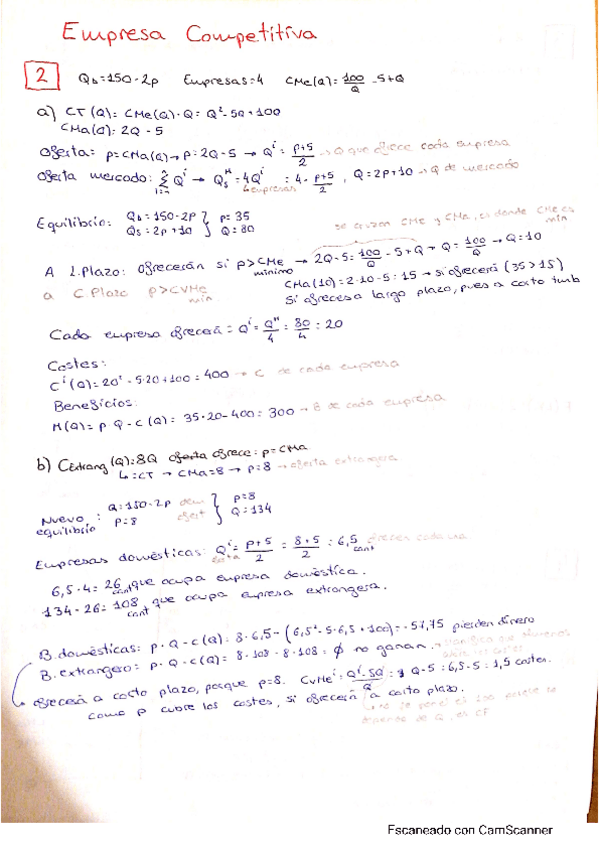 Empresa Competitiva
2 Qd=150-2p Empresas=4 CMe(Q)=100/Q -5+Q
a) CT(Q)= CMe(Q)·Q= Q²-5Q+100
CMa(Q)= 2Q-5
Oferta: p=CMa(Q)→ p=2Q-5 → Qⁱ= p+5/2 → Q que ofrece cada empresa
Oferta mercado: Σ Qⁱ → Qsᴹ=4Qⁱ = 4· p+5/2, Q=2p+10 → Q de mercado
i=1 4 empresas
Equilibrio: Qd=150-2p } p=35
Qs=2p+10 } Q=80
se cruzan CMe y CMa, es donde CMe es min
A L.Plazo: ofrecerán si p>CMe mínimo → 2Q-5=100/Q -5+Q → Q=100/Q → Q=10
a C.Plazo p>CVMe min
CMa(10)=2·10-5=15 → si ofrecerá (35>15)
Si ofrece a largo plazo, pues a corto tmb
Cada empresa ofrecerá= Qⁱ= Qᴹ/4 = 80/4 = 20
Costes:
Cⁱ(Q)=20²-5·20+100=400 → C de cada empresa
Beneficios:
M(Q)= p·Q-C(Q)= 35·20-400=300 → B de cada empresa
b) CExtrang(Q)=8Q oferta ofrece: p=CMa
↳ CT → CMa=8 → p=8 → oferta extrangera
Nuevo equilibrio: Q=150-2p dem } p=8
P=8 ofert } Q=134
Empresas domésticas: Qⁱ= p+5/2 = 8+5/2 = 6,5 cant ofrece cada una
6,5·4=26 cant que ocupa empresa doméstica.
134-26=108 cant que ocupa empresa extrangera.
B.domésticas: p·Q-C(Q)= 8·6,5-(6,5²-5·6,5+100)=-57,75 pierden dinero
B.extrangero: p·Q-C(Q)= 8·108-8·108=∅ no ganan.
Ofrecerá a corto plazo, porque p=8. CVMeⁱ= Q²-5Q/Q = Q-5=6,5-5=1,5 costes.
como p cubre los costes, si ofrecerá a corto plazo.
Escaneado con CamScanner